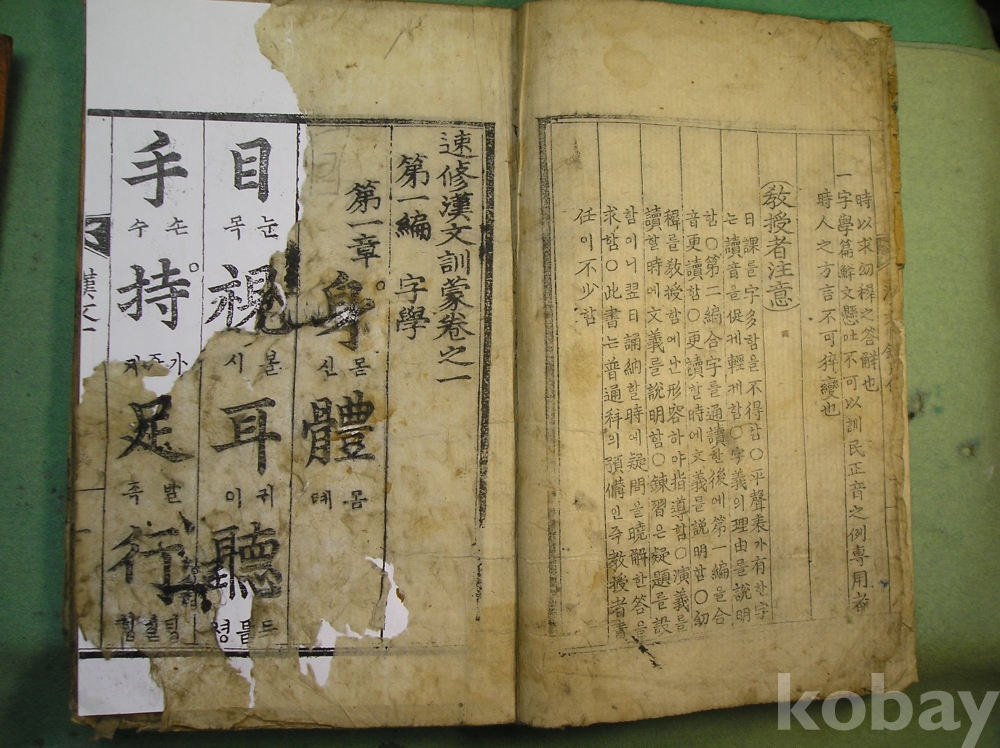 時以求幼穉之答解也
一字學篇解文懸吐不可以訓民正音之例專用
時人之方言不可猝變也
教授者注意
日課를字多함을不得함○平聲 有한字
는讀音을促케輕케함○字義의理由를說明
함○第二編合字를通讀한後에第一編을合
音更讀함○更讀할時에文義를說明함○幼
穉를教授함에난形容하야指導함○演義를
讀할時에文義를說明함○鍊習은疑題를設
함이니翌日誦納할時에疑問을曉解한答을
求함○此書는普通科의預備인즉教授者責
任이不少함
速修漢文訓蒙卷之一
第一編 字學
第一章
身 體
신 몸
톄 몸
目 視 耳 聽
목 눈
시 볼
이 귀
령 들
手 持 足 行
수 손
지 가
족 발
漢文一
kobay